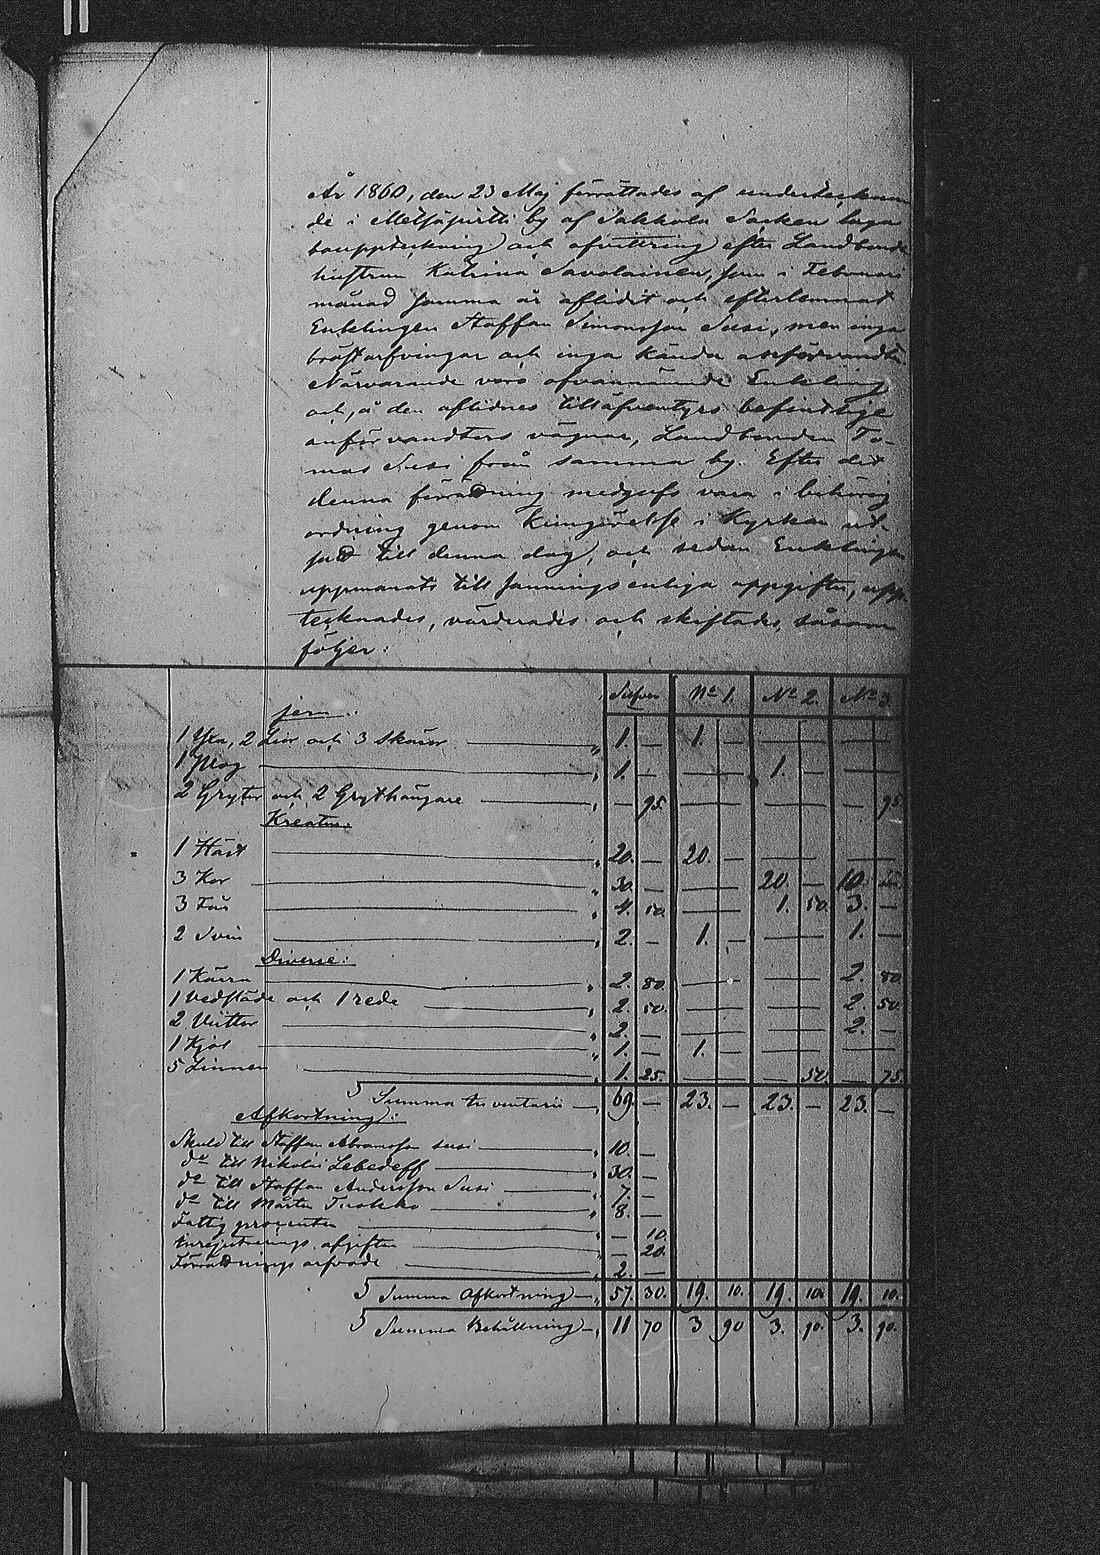 År 1860, den 23 Maj förrättades af undertecknan
de i Metsäpirtti by af Sakkola Socken laga
bouppteckning och afvittring efter Landbonde
hustrun Katrina Savolainen, som i Februari
månad samma år aflidit och efterlemnat
Enklingen Staffan Simonsson Susi, men inga
bröstarfvingar och inga kända anförvandter.
Närvarande voro ofvannämnde Enkling
och, å den aflidnes tilläfventyrs befintlige
anförvandters vägnar, Landbonden To-
mas Susi från samma by. Efter det
denna förrättning medgifs vara i behörig
ordning genom kungörelse i Kyrkan ut-
satt till denna dag, och sedan Enklingen
uppmanats till sanningsenliga uppgifter, upp-
tecknades, värderades och skiftades, såsom
följer:
Silfver No 1. No 2. No 3.
Jern:
1 Yxa, 2 Liar och 3 skäror " 1. — 1. —
1 Plog " 1. — 1. —
2 Grytor och 2 Grythängare " — 95. — 95.
Kreatur:
1 Häst " 20. — 20. —
3 Kor " 30. — 20. — 10. —
3 Får " 4. 50. 1. 50. 3. —
2 Svin " 2. — 1. — 1. —
Diverse:
1 Kärra " 2. 80. 2. 80.
1 Vedsläde och 1 rede " 2. 50. 2. 50.
2 Vuttor " 2. — 2. —
1 Kjol " 1. — 1. —
5 Linnen " 1. 25. — 50. — 75.
Summa Inventarii " 69. — 23. — 23. — 23. —
Afkortning:
Skuld till Staffan Abramsson Susi " 10. —
do till Nikolai Lebedeff " 30. —
do till Staffan Andersson Susi " 7. —
do till Mårten Tuokko " 8. —
Fattig procenten " — 10.
Inregistrerings afgiften " — 20.
Förrättnings arfvode " 2. —
Summa Afkortning " 57. 30. 19. 10. 19. 10. 19. 10.
Summa Behållning " 11 70 3 90 3. 90. 3. 90.